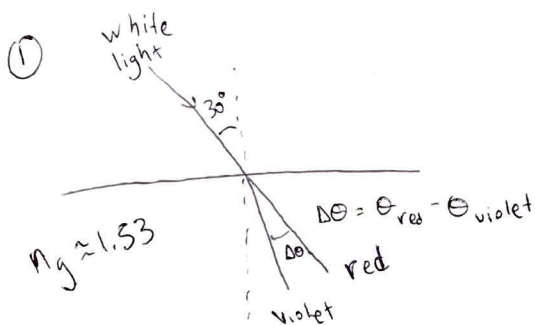 ①
white
light
30°
Δθ = θ red - θ violet
n g ≈ 1.53
Δθ
red
violet